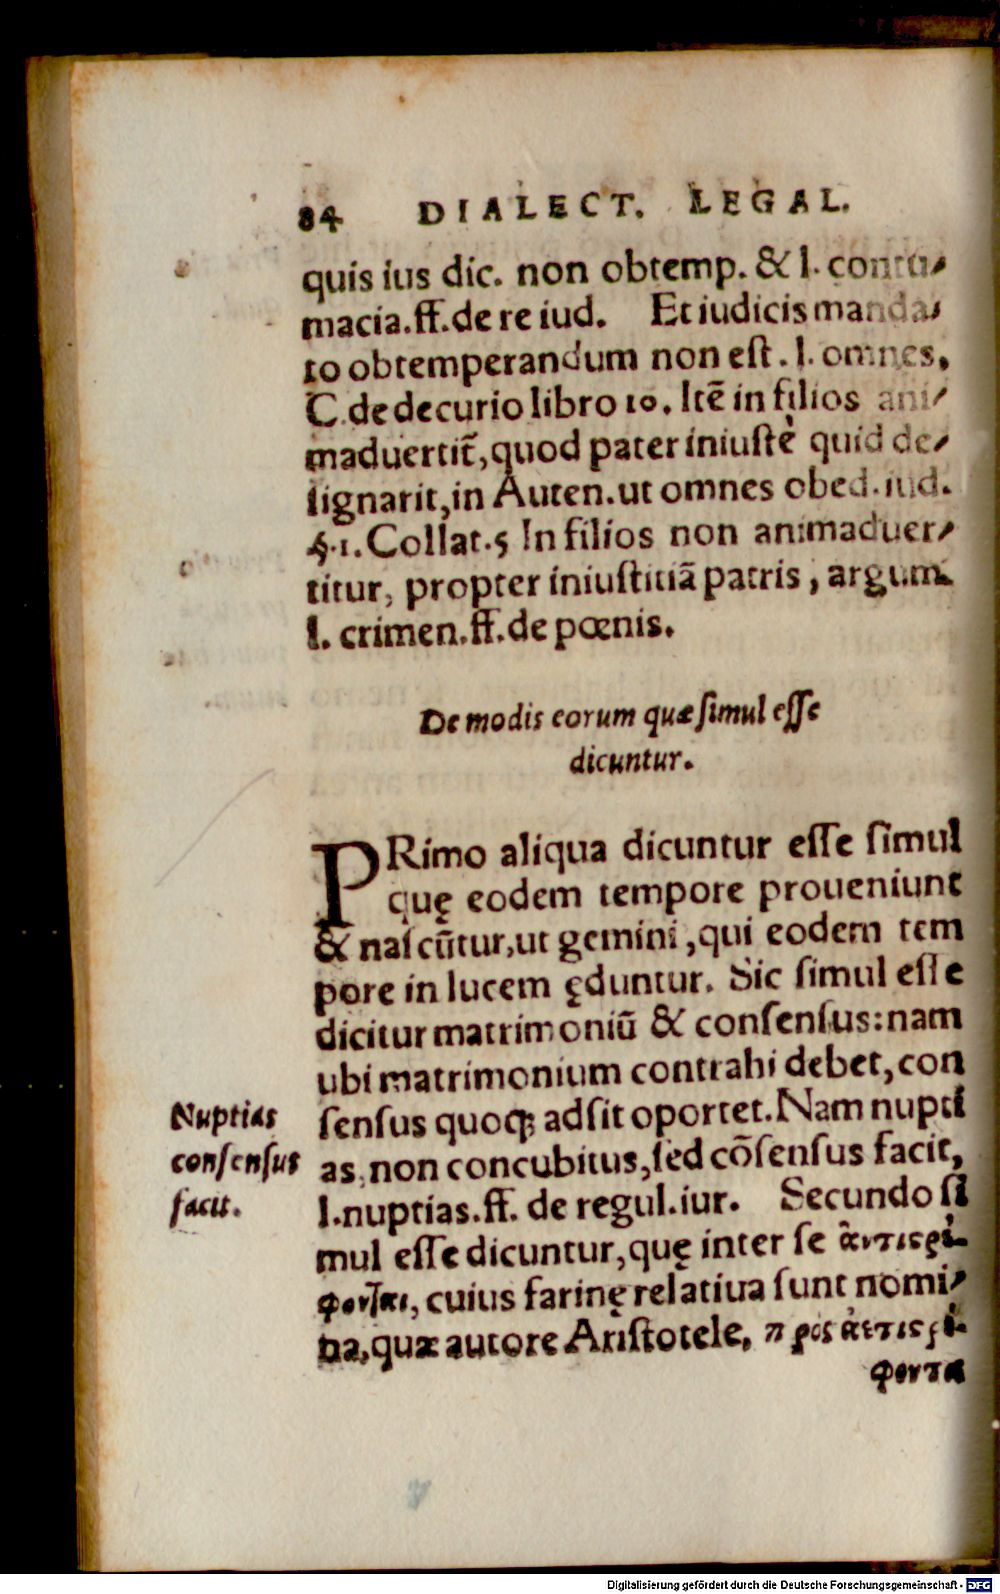 84 DIALECT. LEGAL.
quis ius dic. non obtemp. & l. contu⸗
macia.ff.de re iud. Et iudicis manda⸗
to obtemperandum non est. l. omnes,
C. de decurio libro 10. Itē in filios ani⸗
maduertit̃, quod pater iniustè quid de⸗
signarit, in Auten. ut omnes obed. iud.
§.1. Collat.5 In filios non animaduer⸗
titur, propter iniustitiā patris, argum.
l. crimen.ff.de pœnis.
De modis eorum quæ simul esse
dicuntur.
PRimo aliqua dicuntur esse simul
quę eodem tempore proueniunt
& nascũtur, ut gemini, qui eodem tem
pore in lucem ęduntur. Sic simul esse
dicitur matrimoniũ & consensus: nam
ubi matrimonium contrahi debet, con
sensus quoq; adsit oportet. Nam nupti
as, non concubitus, sed cõsensus facit,
l. nuptias.ff. de regul. iur. Secundo si
mul esse dicuntur, quę inter se ἀντιςρέ-
φονται, cuius farinę relatiua sunt nomi⸗
na, quæ autore Aristotele, πρὸς ἀντιςρέ-
φοντα
Nuptias
consensus
facit.
Digitalisierung gefördert durch die Deutsche Forschungsgemeinschaft - DFG